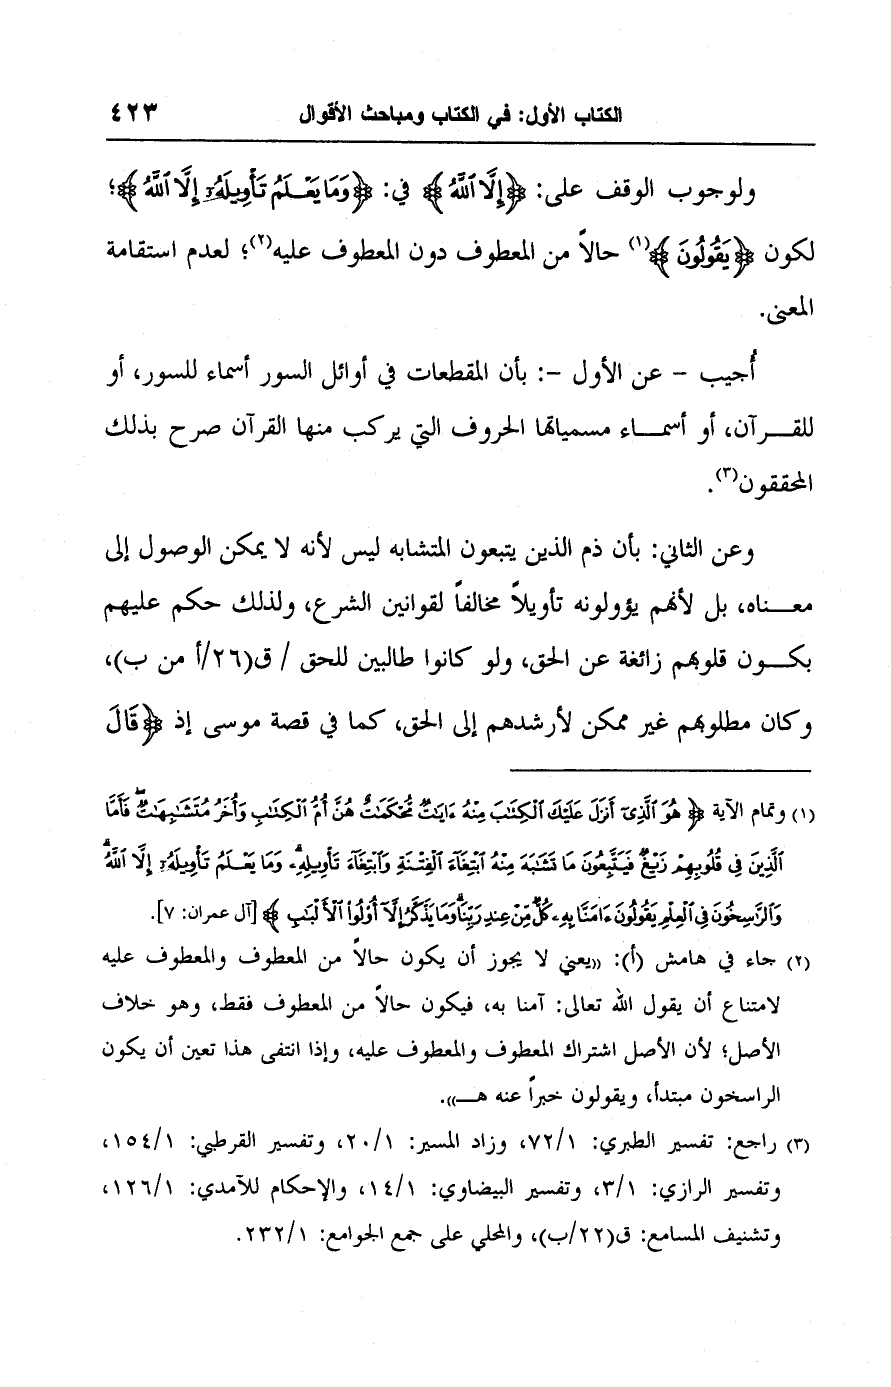 الكتاب الأول: في الكتاب ومباحث الأقوال ٤٢٣
ولوجوب الوقف على: ﴿إِلَّا ٱللَّهُ﴾ في: ﴿وَمَا يَعْلَمُ تَأْوِيلَهُۥٓ إِلَّا ٱللَّهُ﴾؛
لكون ﴿يَقُولُونَ﴾(١) حالاً من المعطوف دون المعطوف عليه(٢)؛ لعدم استقامة
المعنى.
أُجيب - عن الأول -: بأن المقطعات في أوائل السور أسماء للسور، أو
للقــرآن، أو أسمــاء مسمياتها الحروف التي يركب منها القرآن صرح بذلك
المحققون(٣).
وعن الثاني: بأن ذم الذين يتبعون المتشابه ليس لأنه لا يمكن الوصول إلى
معــناه، بل لأنهم يؤولونه تأويلاً مخالفاً لقوانين الشرع، ولذلك حكم عليهم
بكــون قلوبهم زائغة عن الحق، ولو كانوا طالبين للحق / ق(٢٦/أ من ب)،
وكان مطلوبهم غير ممكن لأرشدهم إلى الحق، كما في قصة موسى إذ ﴿قَالَ
(١) وتمام الآية ﴿هُوَ ٱلَّذِىٓ أَنزَلَ عَلَيْكَ ٱلْكِتَٰبَ مِنْهُ ءَايَٰتٌ مُّحْكَمَٰتٌ هُنَّ أُمُّ ٱلْكِتَٰبِ وَأُخَرُ مُتَشَٰبِهَٰتٌ ۖ فَأَمَّا
ٱلَّذِينَ فِى قُلُوبِهِمْ زَيْغٌ فَيَتَّبِعُونَ مَا تَشَٰبَهَ مِنْهُ ٱبْتِغَآءَ ٱلْفِتْنَةِ وَٱبْتِغَآءَ تَأْوِيلِهِۦ ۗ وَمَا يَعْلَمُ تَأْوِيلَهُۥٓ إِلَّا ٱللَّهُ ۗ
وَٱلرَّٰسِخُونَ فِى ٱلْعِلْمِ يَقُولُونَ ءَامَنَّا بِهِۦ كُلٌّ مِّنْ عِندِ رَبِّنَا ۗ وَمَا يَذَّكَّرُ إِلَّآ أُو۟لُوا۟ ٱلْأَلْبَٰبِ﴾ [آل عمران: ٧].
(٢) جاء في هامش (أ): «يعني لا يجوز أن يكون حالاً من المعطوف والمعطوف عليه
لامتناع أن يقول الله تعالى: آمنا به، فيكون حالاً من المعطوف فقط، وهو خلاف
الأصل؛ لأن الأصل اشتراك المعطوف والمعطوف عليه، وإذا انتفى هذا تعين أن يكون
الراسخون مبتدأ، ويقولون خبراً عنه هــ».
(٣) راجع: تفسير الطبري: ٧٢/١، وزاد المسير: ٢٠/١، وتفسير القرطبي: ١٥٤/١،
وتفسير الرازي: ٣/١، وتفسير البيضاوي: ١٤/١، والإحكام للآمدي: ١٢٦/١،
وتشنيف المسامع: ق(٢٢/ب)، والمحلي على جمع الجوامع: ٢٣٢/١.